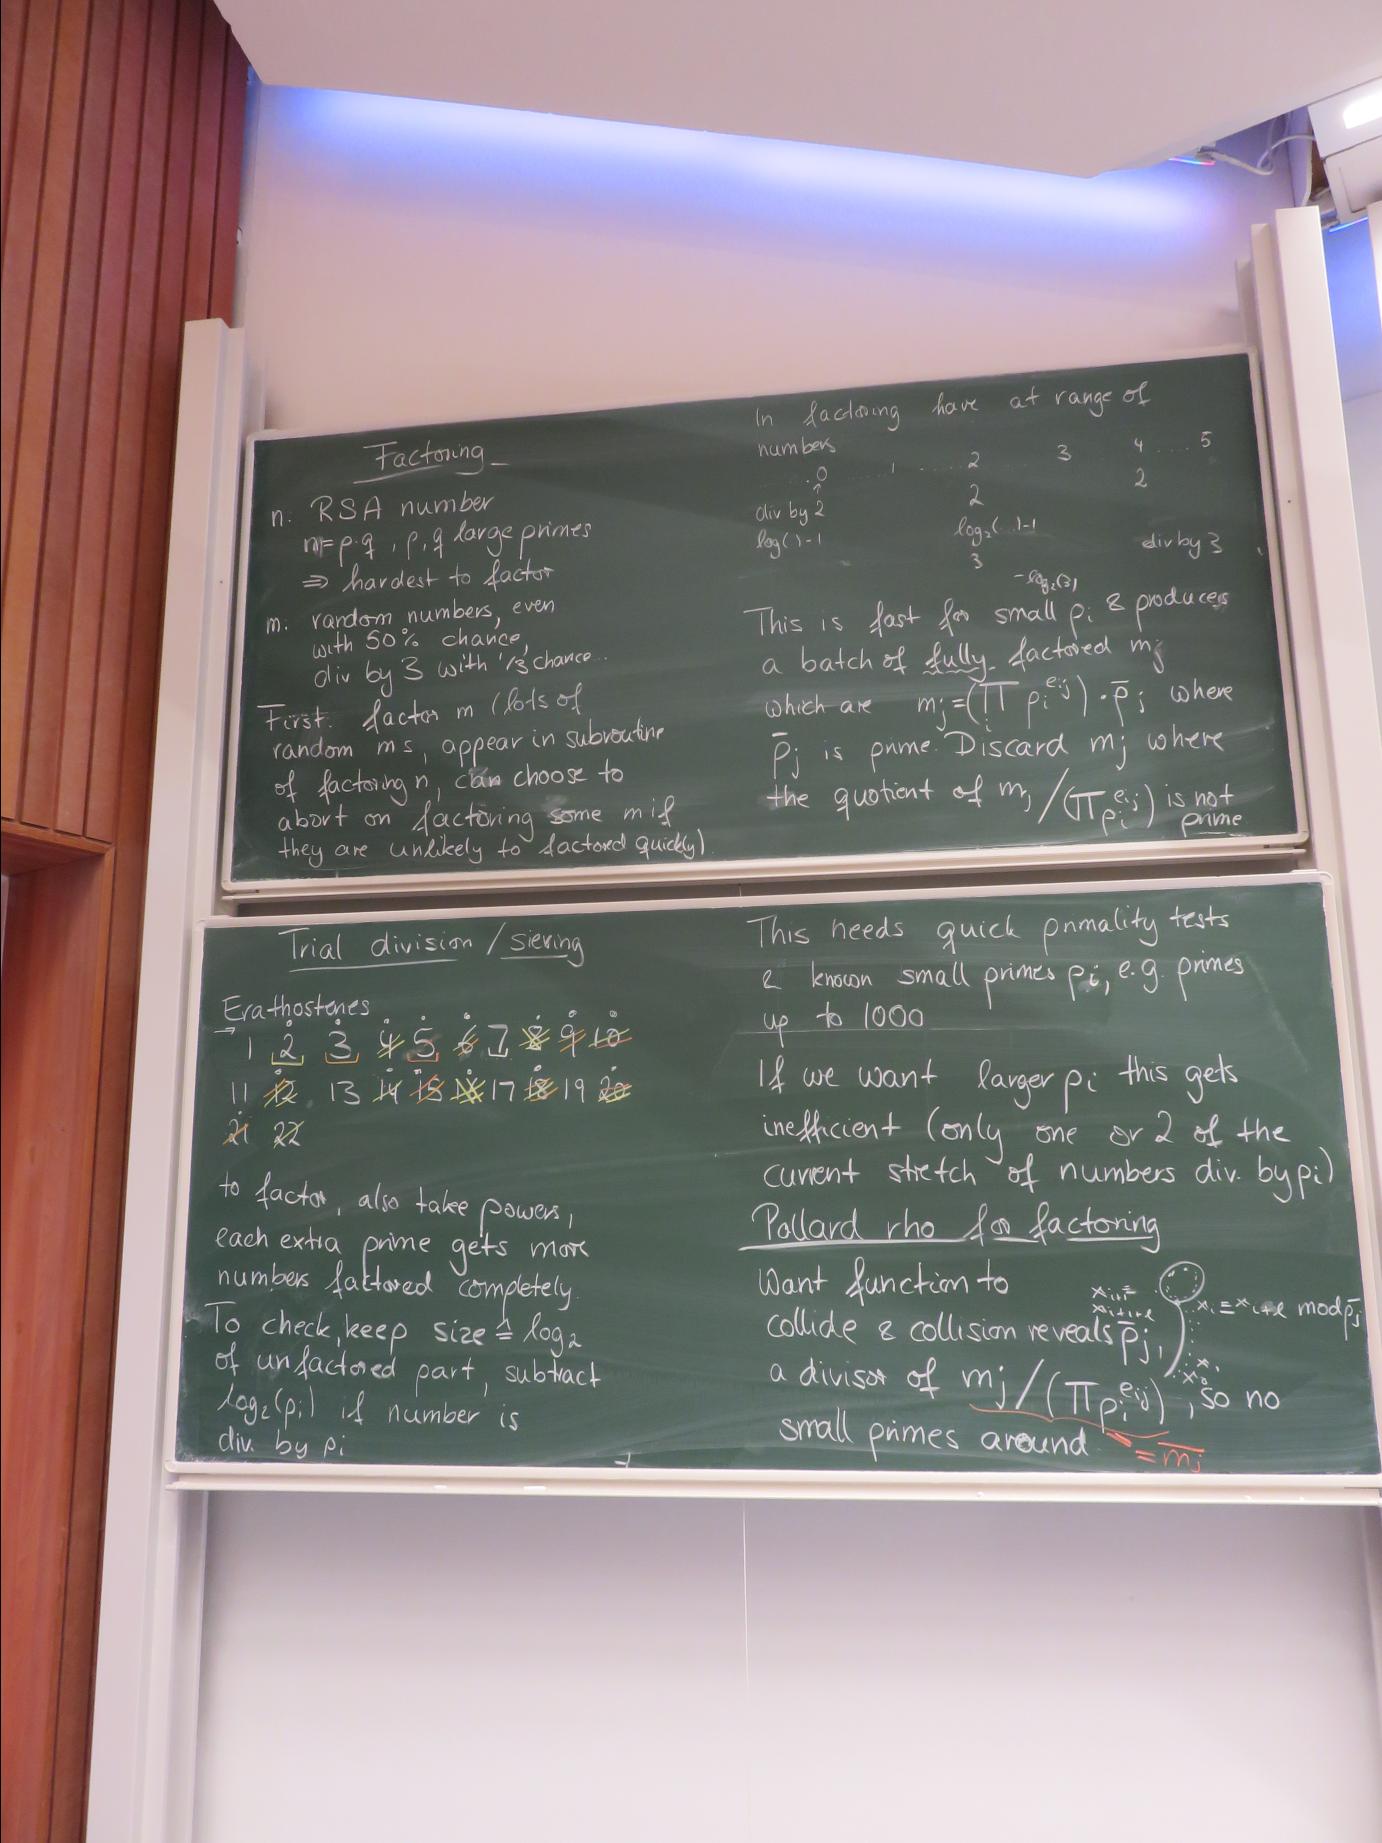 Factoring
n: RSA number
n=p·q, p,q large primes
⇒ hardest to factor
m: random numbers, even
with 50% chance,
div by 3 with 1/3 chance...
First: factor m (lots of
random ms, appear in subroutine
of factoring n, can choose to
abort on factoring some m if
they are unlikely to factored quickly).
In factoring have at range of
numbers
0 1 ...... 2 3 4 .... 5
div by 2 2 2
log( )-1 log₂(...)-1 div by 3
3
-log₂(3)
This is fast for small pi & produces
a batch of fully factored mj
which are mj=(∏ pi^eij)·p̄j where
p̄j is prime. Discard mj where
the quotient of mj/(∏pi^eij) is not
prime
Trial division / sieving
Erathostenes
→ 1 2 3 4 5 6 7 8 9 10
11 12 13 14 15 16 17 18 19 20
21 22
to factor, also take powers,
each extra prime gets more
numbers factored completely.
To check, keep size ≙ log₂
of unfactored part, subtract
log₂(pi) if number is
div. by pi
This needs quick primality tests
& known small primes pi, e.g. primes
up to 1000
If we want larger pi this gets
inefficient (only one or 2 of the
current stretch of numbers div. by pi)
Pollard rho for factoring
Want function to
collide & collision reveals p̄j,
a divisor of mj/(∏pi^eij), so no
small primes around
= m̄j
xi+1≡
xi+1+ℓ
xi≡xi+ℓ mod p̄j
x₁
x₀